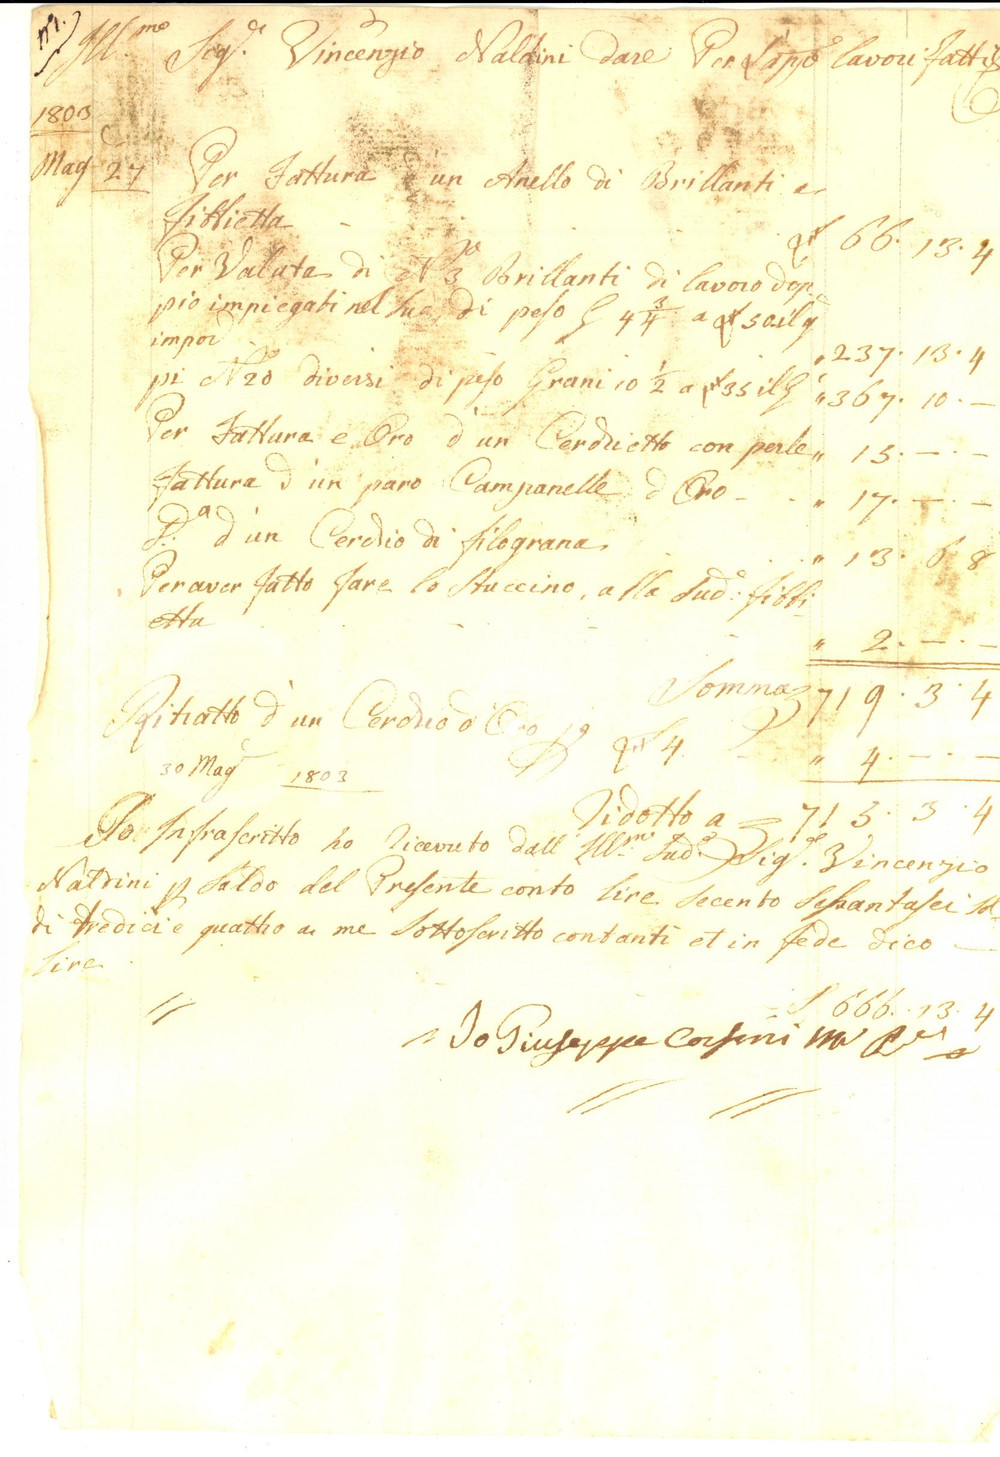 Ill.mo Sig.re Vincenzio Naldini dare Per lavori fatti
1803
Mag 27 Per Fattura d'un Anello di Brillanti e
fibbietta - 66. 13. 4
Per Valuta di N 3 Brillanti di lavoro dop
pio impiegati nel Sud di peso G 4 3/4 a 50 il g
impor " 237. 13. 4
pi N 20 diversi di peso Grani 10 1/2 a 35 il G " 367. 10. —
Per Fattura e Oro d'un Cerchietto con perle " 15. — . —
Fattura d'un paro Campanelle d'Oro - " 17. — . —
D.a d'un Cerchio di filograna " 13. 6 8
Per aver fatto fare lo Stuccino, alla Sud: fibbi
etta " 2. — . —
Somma 719. 3. 4
Ritratto d'un Cerchio d'Oro 4 " 4. — . —
30 Mag 1803
Ridotto a = 715. 3. 4
Io Infrascritto ho ricevuto dall Ill.mo Sud.o Sig.re Vincenzio
Naldini p Saldo del Presente conto lire secento sessantasei sol
di tredici e quattro a me Sottoscritto contanti et in fede dico —
lire
666. 13. 4
Io Giuseppe Corsini